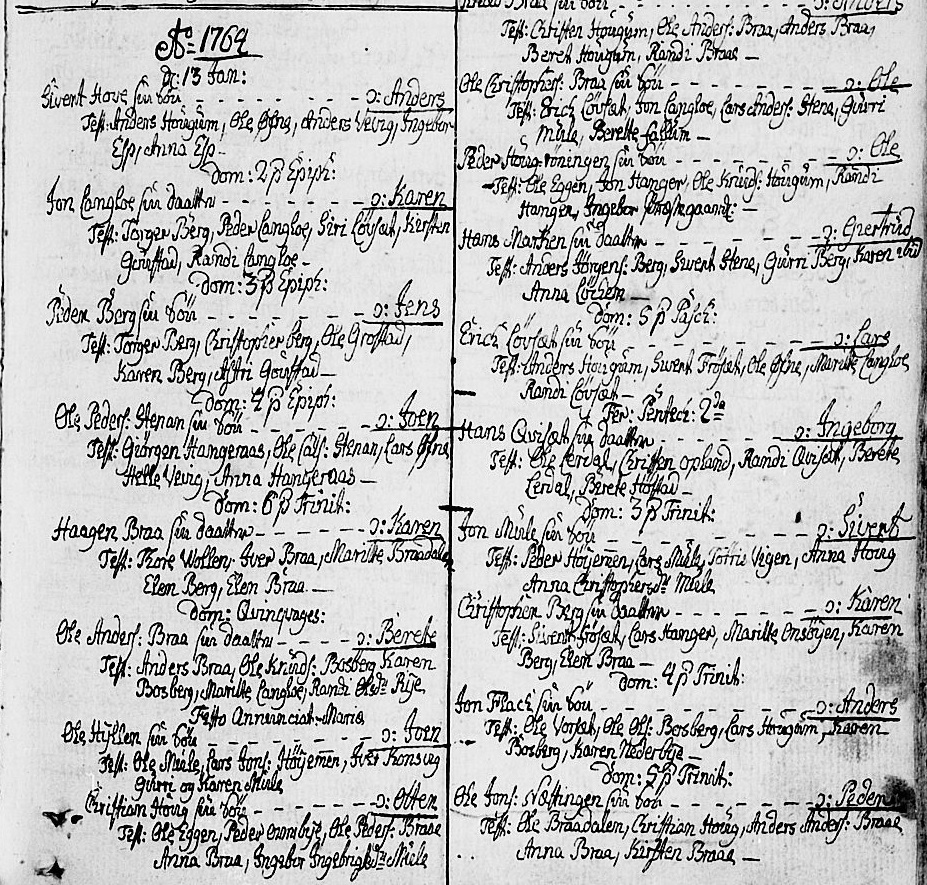 Aō 1764
D: 13 Jan:
Sivent Hove sin Sön - - - ɔ: Anders
Test: Anders Hougum, Ole Øfne, Anders Vevig, Ingebor
Esp, Anna Esp –
Dom: 2 p Epiph:
Jon Langloe sin daatter - - - ɔ: Karen
Test: Torger Berg, Peder Langloe, Siri Löfsæt, Kirsten
Granstad, Randi Langloe –
Dom: 3 p Epiph:
Peder Berg sin Sön - - - ɔ: Jens
Test: Torger Berg, Christopher berg, Ole Grostad,
Karen Berg, Astri –
Dom: 4 p Epiph:
Ole Peders: Stenan sin Sön - - - ɔ: Joen
Test: Giörgen Hangeraas, Ole Stenan, Lars Øfne
Helle Vevig, Anna Hangeraas –
Dom: 6 p Trinit:
Haagen Braa sin daatter - - - ɔ: Karen
Test: Tore Wollen, Iver Braa, Maritte Braadale
Elen Berg, Elen Braa –
Dom: Qvinqvages:
Ole Anders: Braa sin daatter - - - ɔ: Berete
Test: Anders Braa, Ole Knuds: Bosberg Karen
Bosberg, Maritte Langloe, Randi Rye
Festo Annunciat: Mariæ
Ole Hyllen sin Sön - - - ɔ: Joen
Test: Ole Mule, Lars Jons: Höyemen, Iver
Gurri og Karen Mule
Christian Houg sin Sön - - - ɔ: Osten
Test: Ole Eggen, Peder, Ole Peders: Braae
Anna Braa, Ingebor Ingebrigtsdr Mule
Braa sin Sön - - - ɔ: Anders
Test: Christen Hougum, Ole Anders: Braa, Anders Braa,
Beret Hougum, Randi Braae –
Ole Christophers: Braa sin Sön - - - ɔ: Ole
Test: Erich Löfsæt, Jon Langloe, Lars Anders: Stene, Gurri
Mule, Berette –
Peder Houg sin Sön - - - ɔ: Ole
Test: Ole Eggen, Jon Hanger, Ole Knuds: Hougum, Randi
Hanger, Ingebor –
Hans sin daatter - - - ɔ: Giertrud
Test: Anders Jörgens: Berg, Sivent Stene, Gurri Berg, Karen ibid
Anna –
Dom: 5 p Pasch:
Erich Löfsæt sin Sön - - - ɔ: Lars
Test: Anders Hougum, Sivent Fröset, Ole Øfne, Maritte Langloe
Randi Löfsæt –
Fer: Pentec: 2da
Hans Qvisæt sin daatter - - - ɔ: Ingeborg
Test: Ole Lerdal, Christen opland, Randi Qvisæt, Berete
Lerdal, Berete Hofstad –
Dom: 3 p Trinit:
Jon Mule sin Sön - - - ɔ: Sivert
Test: Peder Höyemen, Lars Mule, Vigen, Anna Houg
Anna Christophersdr Mule
Christopher Berg sin daatter - - - ɔ: Karen
Test: Sivent Fröset, Lars Hanger, Maritte Onsöyen, Karen
Berg, Elen Braa –
Dom: 4 p Trinit:
Jon Flack sin Sön - - - ɔ: Anders
Test: Ole Vorset, Ole Ols: Bosberg, Lars Hougum, Karen
Bosberg, Karen Nederbye –
Dom: 5 p Trinit:
Ole Jons: sin Sön - - - ɔ: Peder
Test: Ole Braadalen, Christian Houg, Anders Anders: Braae
Anna Braa, Kirsten Braae –